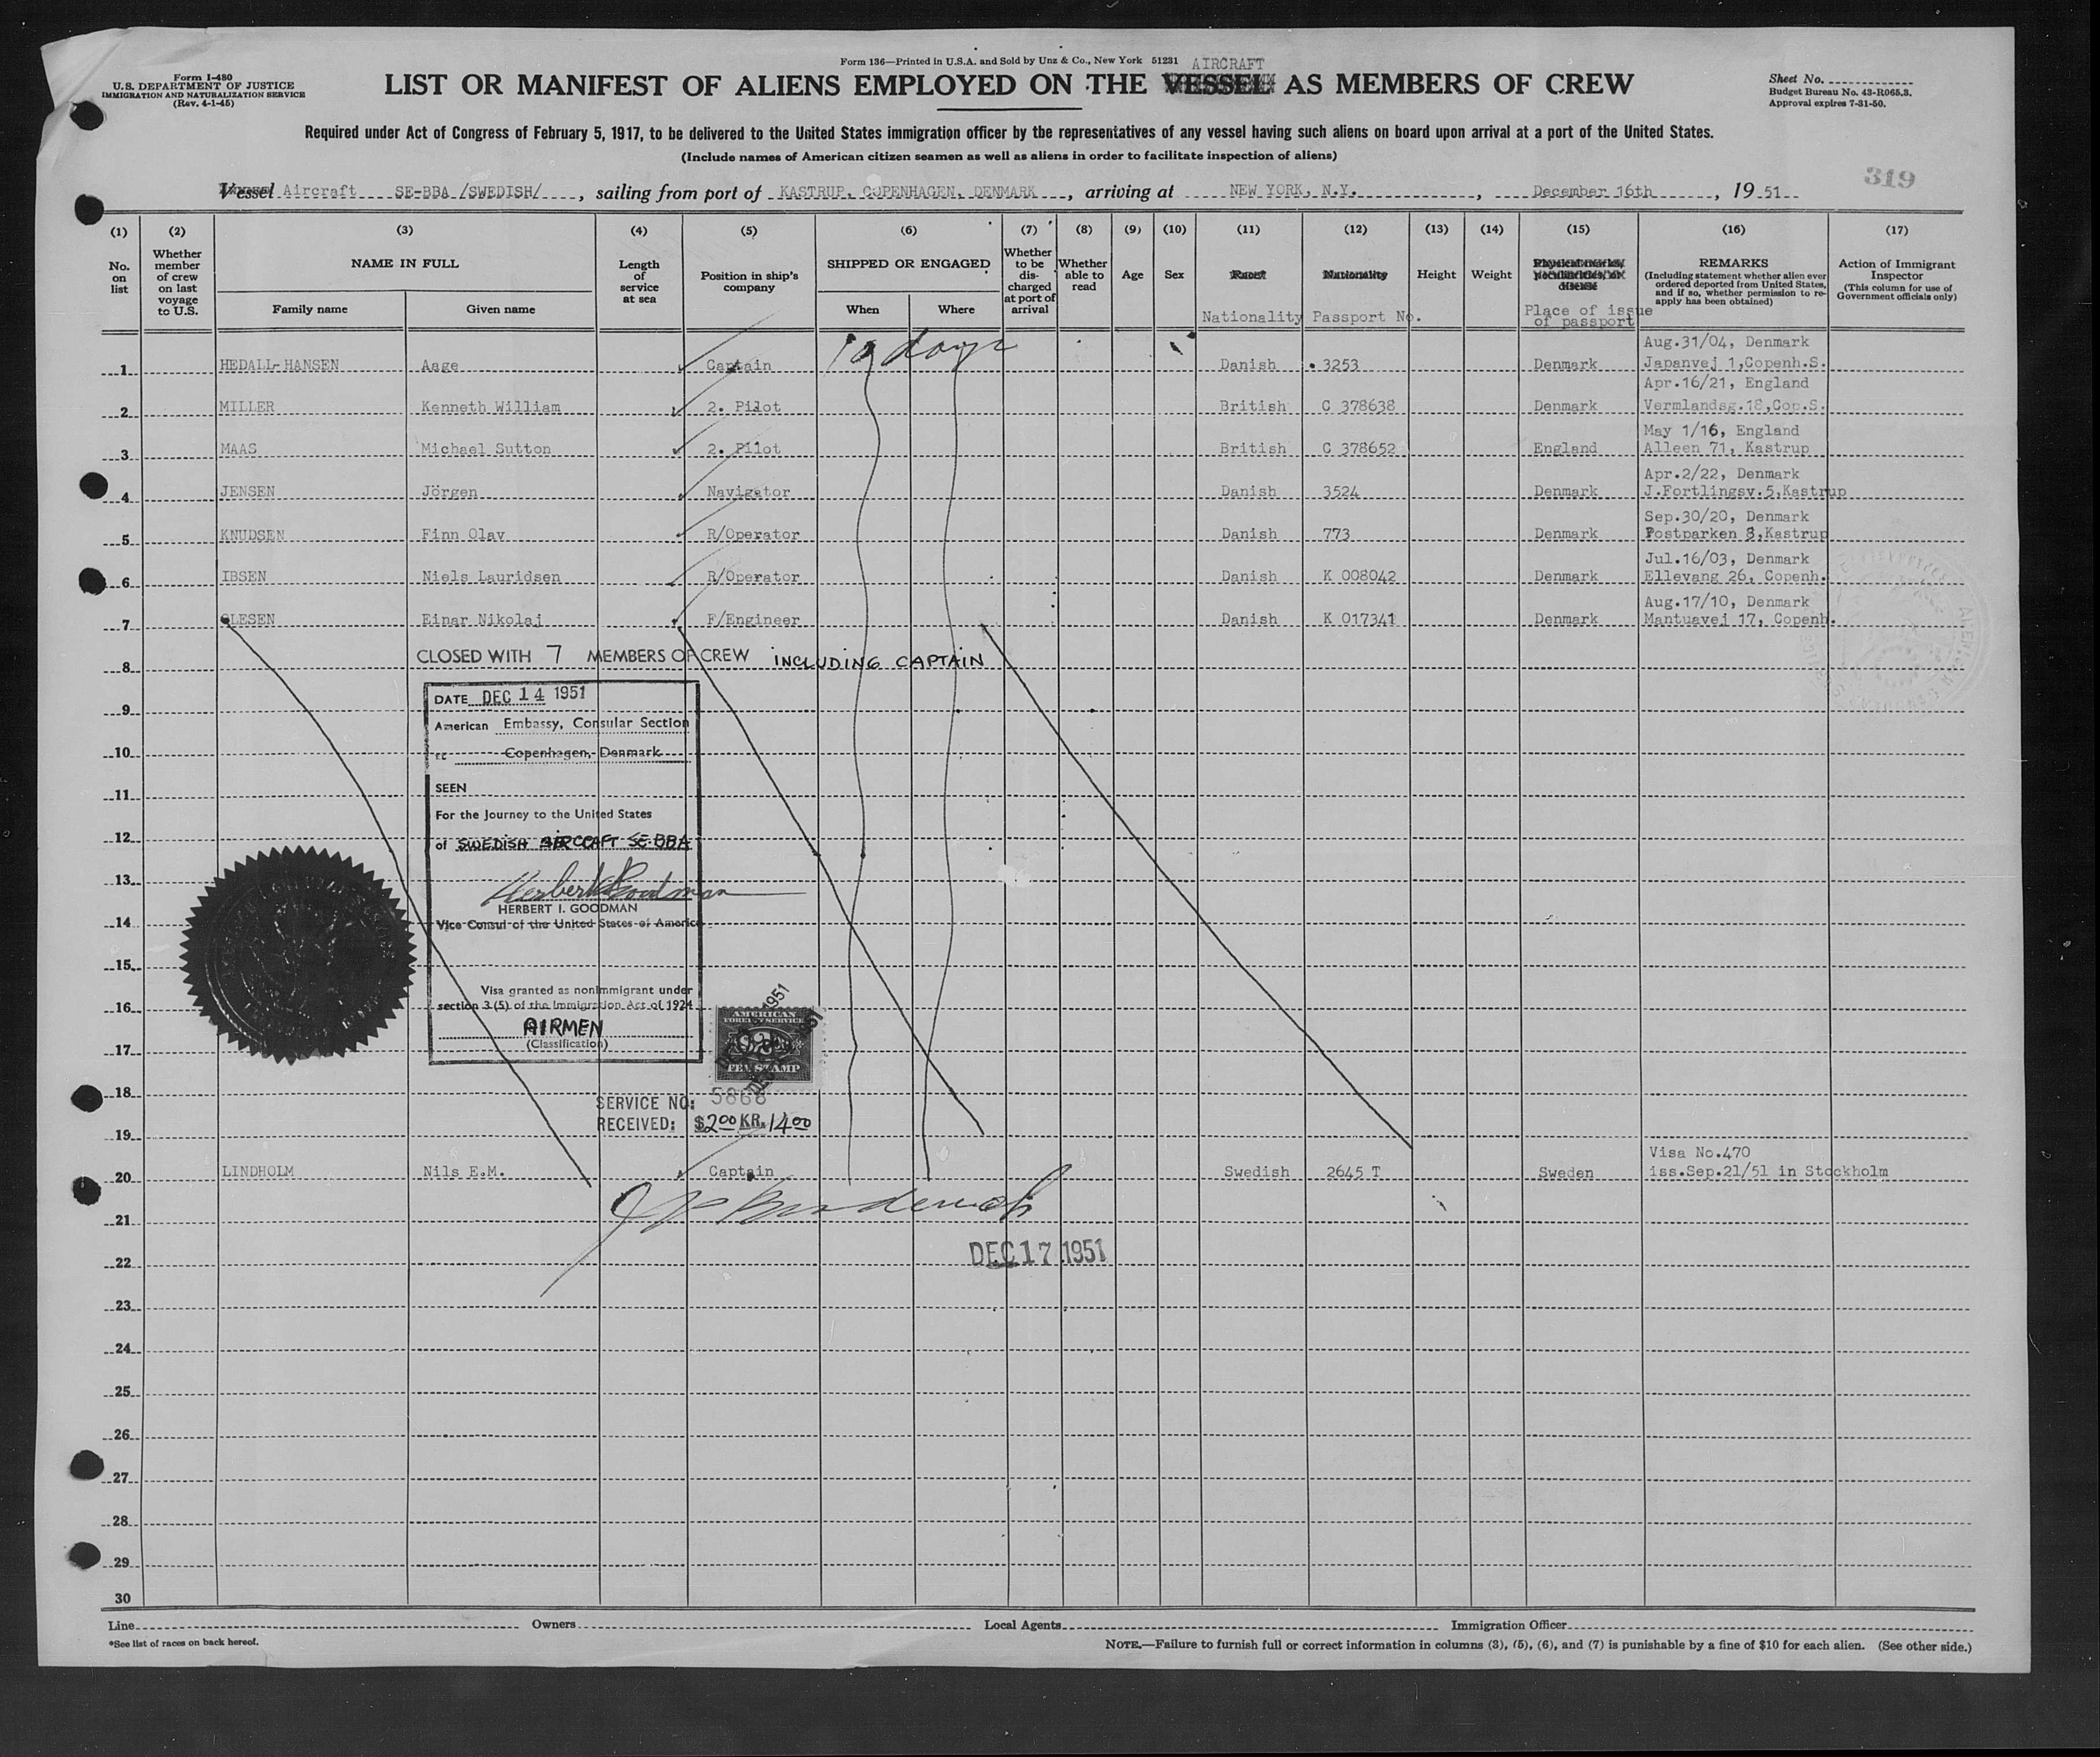 Form 136—Printed in U.S.A. and Sold by Unz & Co., New York 51231
Form I-480
U.S. DEPARTMENT OF JUSTICE
IMMIGRATION AND NATURALIZATION SERVICE
(Rev. 4-1-45)
AIRCRAFT
LIST OR MANIFEST OF ALIENS EMPLOYED ON THE VESSEL AS MEMBERS OF CREW
Sheet No.
Budget Bureau No. 43-R065.3.
Approval expires 7-31-50.
Required under Act of Congress of February 5, 1917, to be delivered to the United States immigration officer by the representatives of any vessel having such aliens on board upon arrival at a port of the United States.
(Include names of American citizen seamen as well as aliens in order to facilitate inspection of aliens)
319
Vessel Aircraft SE-BBA /SWEDISH/, sailing from port of KASTRUP, COPENHAGEN, DENMARK, arriving at NEW YORK, N.Y., December 16th, 1951
(1) (2) (3) (4) (5) (6) (7) (8) (9) (10) (11) (12) (13) (14) (15) (16) (17)
No. on list
Whether member of crew on last voyage to U.S.
NAME IN FULL
Family name
Given name
Length of service at sea
Position in ship's company
SHIPPED OR ENGAGED
When
Where
Whether to be discharged at port of arrival
Whether able to read
Age
Sex
Race*
Nationality
Nationality
Passport No.
Height
Weight
Physical marks, peculiarities, or disease
Place of issue of passport
REMARKS
(Including statement whether alien ever ordered deported from United States, and if so, whether permission to re-apply has been obtained)
Action of Immigrant Inspector
(This column for use of Government officials only)
19 days
Aug.31/04, Denmark
1 HEDALL-HANSEN Aage Captain Danish 3253 Denmark Japanvej 1,Copenh.S.
Apr.16/21, England
2 MILLER Kenneth William 2. Pilot British C 378638 Denmark Vermlandsg.18,Cop.S.
May 1/16, England
3 MAAS Michael Sutton 2. Pilot British C 378652 England Alleen 71, Kastrup
Apr.2/22, Denmark
4 JENSEN Jörgen Navigator Danish 3524 Denmark J.Fortlingsv.5,Kastrup
Sep.30/20, Denmark
5 KNUDSEN Finn Olav R/Operator Danish 773 Denmark Postparken 8,Kastrup
Jul.16/03, Denmark
6 IBSEN Niels Lauridsen R/Operator Danish K 008042 Denmark Ellevang 26, Copenh.
Aug.17/10, Denmark
7 OLESEN Einar Nikolaj F/Engineer Danish K 017341 Denmark Mantuavej 17, Copenh.
CLOSED WITH 7 MEMBERS OF CREW INCLUDING CAPTAIN
8
DATE DEC 14 1951
9
American Embassy, Consular Section
10
Copenhagen, Denmark
SEEN
11
For the Journey to the United States
12
of SWEDISH AIRCRAFT SE-BBA
13
Herbert I Goodman
HERBERT I. GOODMAN
14
Vice Consul of the United States of America
15
Visa granted as nonimmigrant under
16
section 3 (5) of the Immigration Act of 1924
AIRMEN
(Classification)
17
AMERICAN
FOREIGN SERVICE
FEE STAMP
18
SERVICE NO: 5868
RECEIVED: $2.00 KR. 14.00
19
Visa No.470
20 LINDHOLM Nils E.M. Captain Swedish 2645 T Sweden iss.Sep.21/51 in Stockholm
21
DEC 17 1951
22
23
24
25
26
27
28
29
30
Line Owners Local Agents Immigration Officer
*See list of races on back hereof.
NOTE.—Failure to furnish full or correct information in columns (3), (5), (6), and (7) is punishable by a fine of $10 for each alien. (See other side.)